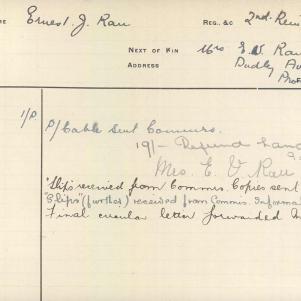 ME Ernest. J. Rau REG., &C 2nd. Rein
NEXT OF KIN Mrs E. V. Rau
ADDRESS Dudley Av
1/P. P/Cable sent Commrs.
19/- Refund hand
Mrs. E. V Rau
"Slips received from Commis. Copies sent
"Slips" (further) received from Commis. Informa
Final circular letter forwarded